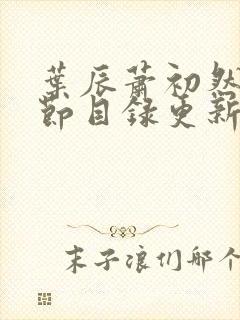 葉辰蕭初然
節目錄更新
末子浪们那个